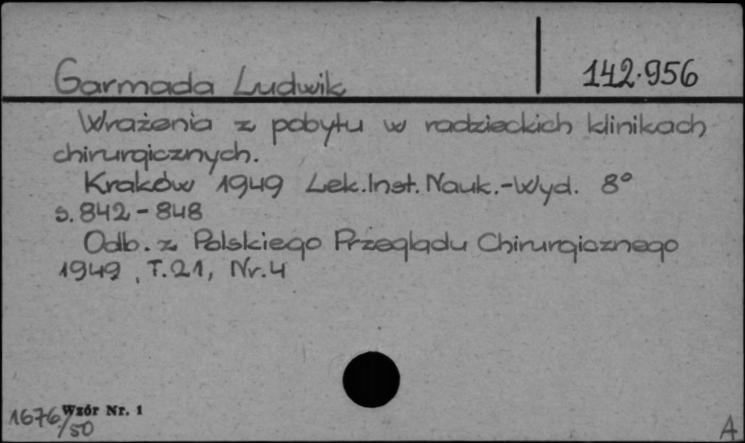 Garmada Ludwik
142.956
Wrażenia z pobytu w radzieckich klinikach
chirurgicznych.
Kraków 1949 Lek.Inst.Nauk.-Wyd. 8°
s. 842-848
Odb. z Polskiego Przeglądu Chirurgicznego
1949, T.21, Nr.4
Wzór Nr. 1
1676/50
A